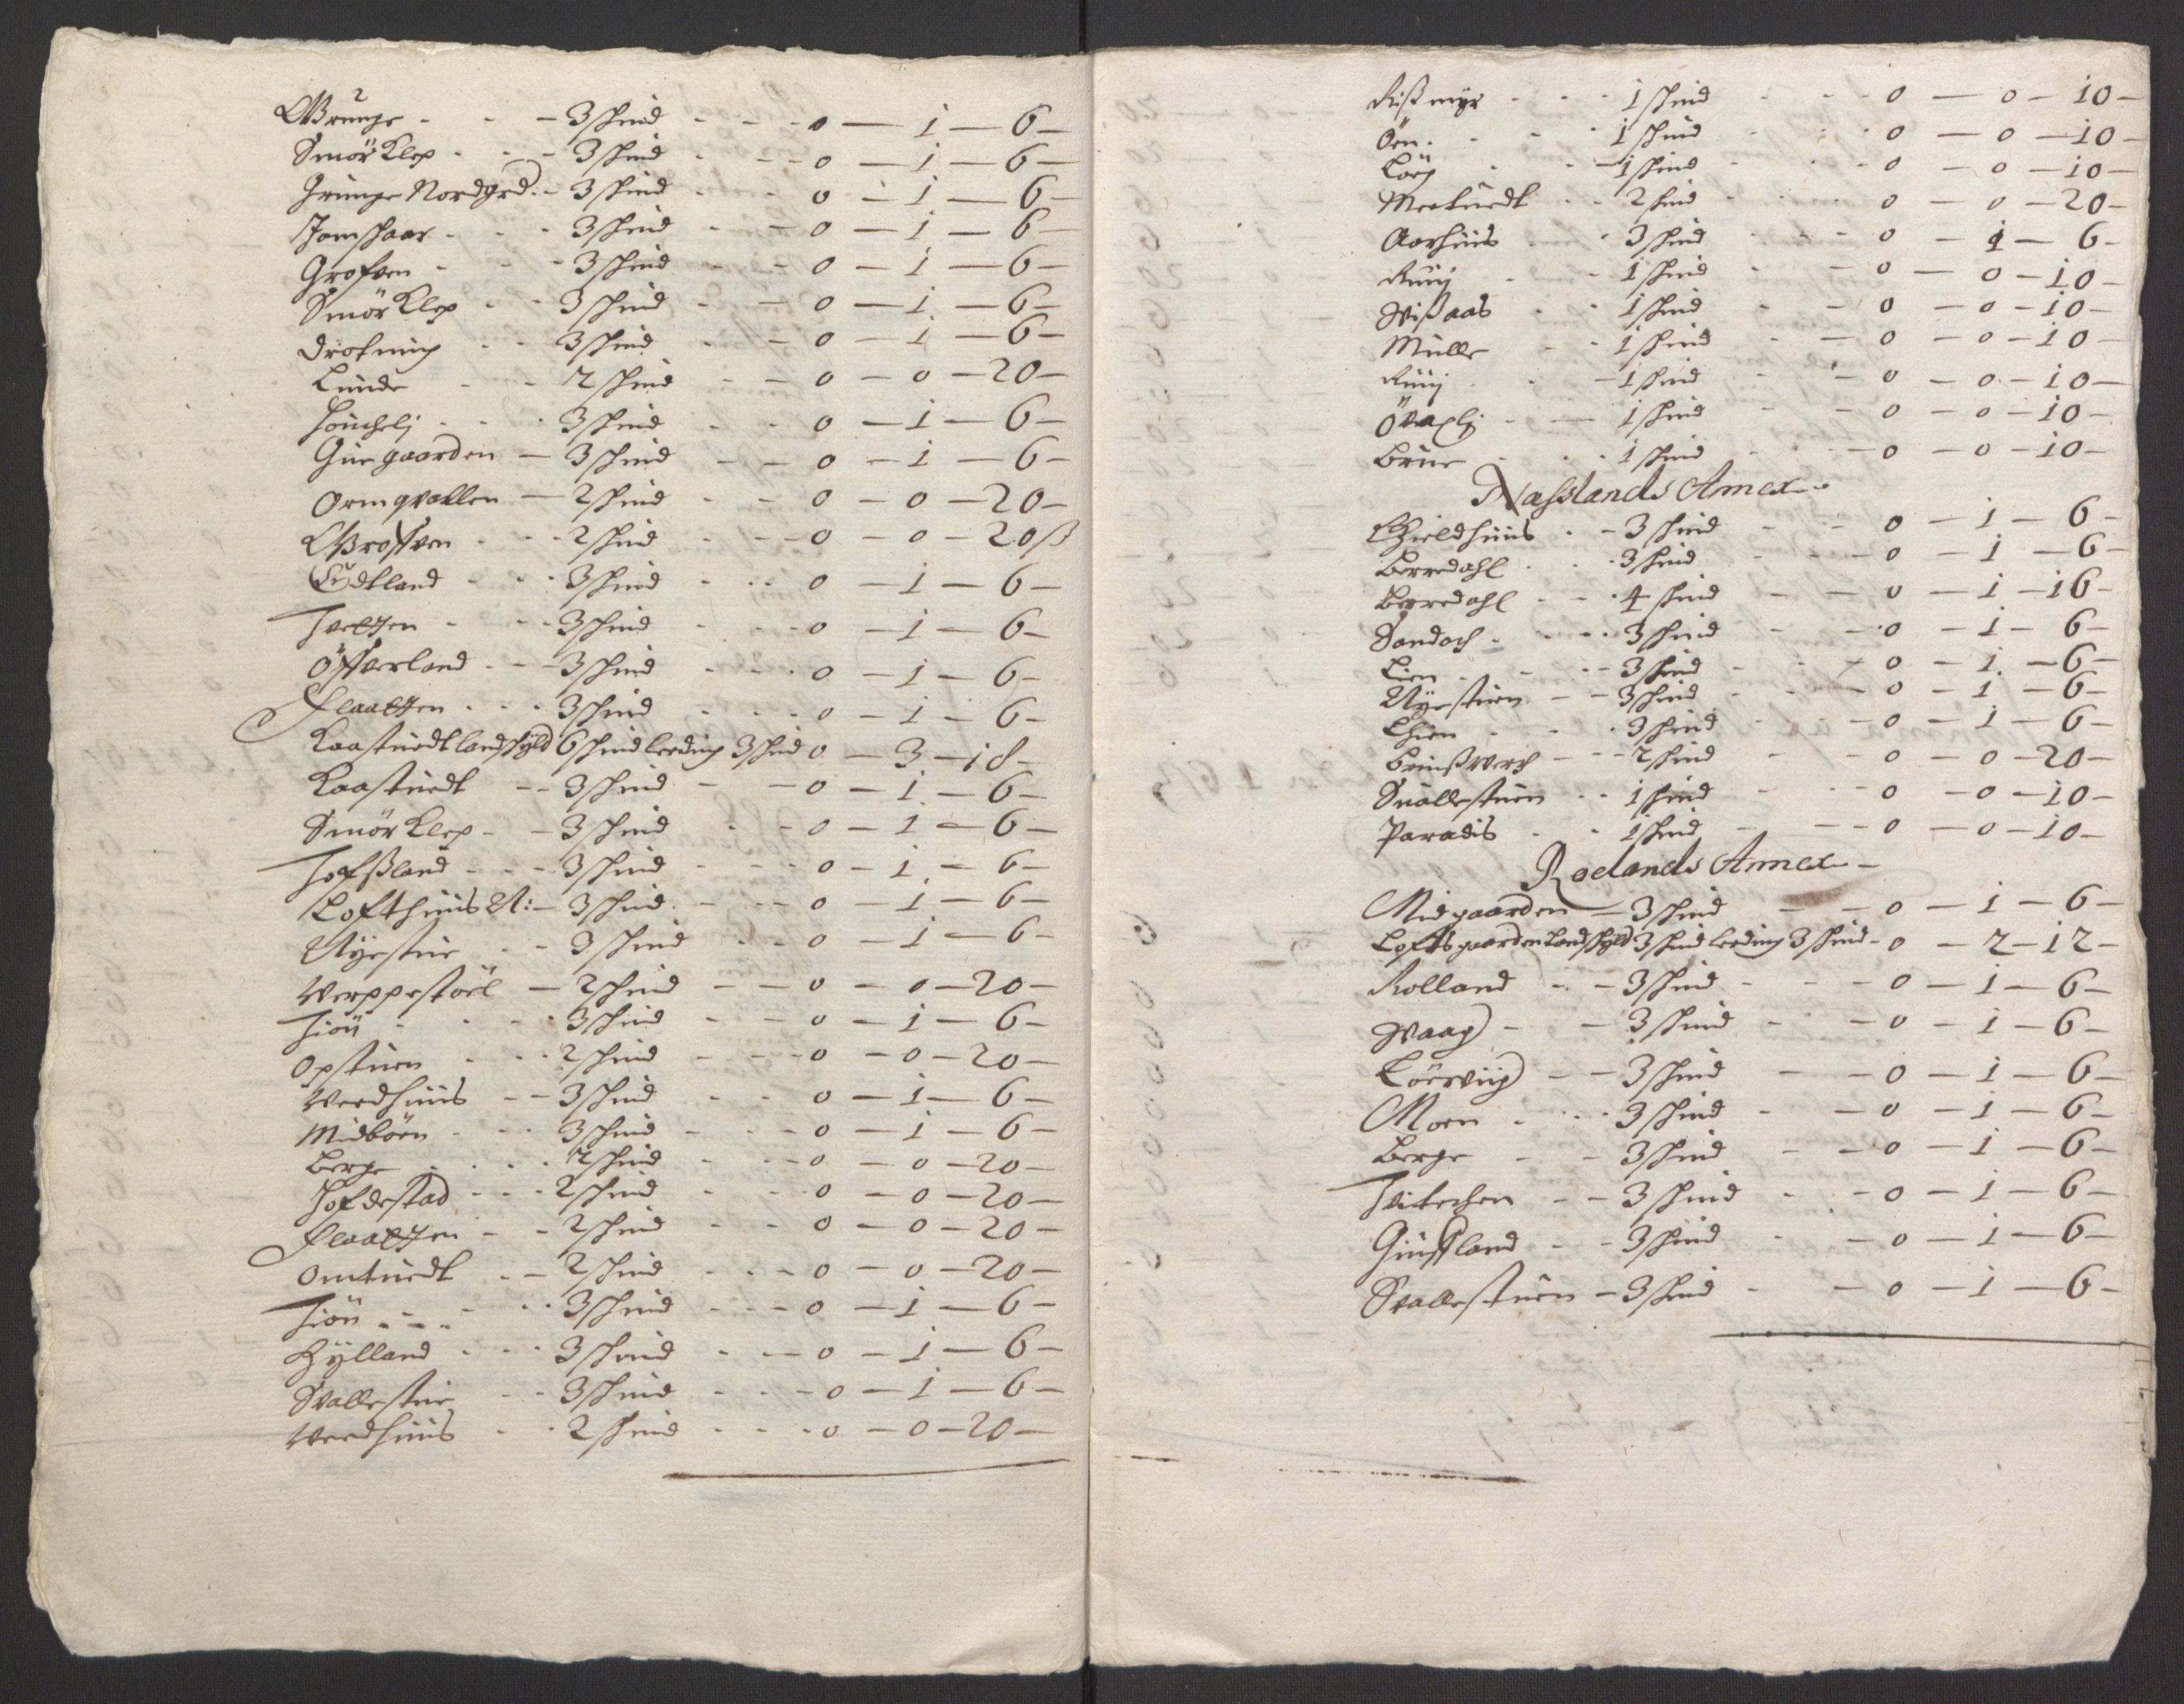 Grunge - - - 3 skind - - - 0 — 1 — 6 —
Smör Klep - - - 3 skind - - - 0 — 1 — 6 —
Grunge Nordgrd: - 3 skind - - 0 — 1 — 6 —
Jamskaar - - - 3 skind - - 0 — 1 — 6 —
Grofven - - - 3 skind - - 0 — 1 — 6 —
Smör Klep - - 3 skind - - 0 — 1 — 6 —
Drotning - - 3 skind - - 0 — 1 — 6 —
Lunde - - 2 skind - - 0 — 0 — 20 —
3 skind - - 0 — 1 — 6 —
Gur gaarden — 3 skind - - 0 — 1 — 6 —
Ormqvallen — 2 skind - - 0 — 0 — 20 —
Groffven - - - 2 skind - - - 0 — 0 — 20 ß
Eudtland - - - 3 skind - - - 0 — 1 — 6 —
Tvetten - - - 3 skind - - - 0 — 1 — 6 —
Öffverland - - - 3 skind - - - 0 — 1 — 6 —
Flaatten - - - 3 skind - - - 0 — 1 — 6 —
Kaastuedt landskyld 6 skind Leeding 3 skind 0 — 3 — 18 —
Kaastuedt - - 3 skind - - 0 — 1 — 6 —
Smör Klep - - 3 skind - - 0 — 1 — 6 —
Hofßland - - - 3 skind - - - 0 — 1 — 6 —
Lofthuus N: - 3 skind - - - 0 — 1 — 6 —
Nyestue - - 3 skind - - 0 — 1 — 6 —
Verppestöel — 2 skind - - 0 — 0 — 20 —
Tiön - - - 3 skind - - 0 — 1 — 6 —
Opstuen - - - 2 skind - - - 0 — 0 — 20 —
Vordhuus - - 3 skind - - 0 — 1 — 6 —
Midböen - - - 3 skind - - - 0 — 1 — 6 —
Berge - - - 2 skind - - - 0 — 0 — 20 —
Hofdestad - - - 2 skind - - 0 — 0 — 20 —
Flaatten - - 2 skind - - 0 — 0 — 20 —
Omtuedt - - 2 skind - - - 0 — 0 — 20 —
Tiön - - - 3 skind - - - 0 — 1 — 6 —
Hylland - - - 3 skind - - - 0 — 1 — 6 —
Svallestue - - 3 skind - - - 0 — 1 — 6 —
Vordhuus - - 2 skind - - - 0 — 0 — 20 —
Rißmyr - - - 1 skind - - - 0 — 0 — 10 —
Öen - - - 1 skind - - - 0 — 0 — 10 —
- - 1 skind - - 0 — 0 — 10 —
Meetuedt - - 2 skind - - 0 — 0 — 20 —
Aarhuus - - 3 skind - - 0 — 1 — 6 —
Ruuj - - 1 skind - - 0 — 0 — 10 —
Vißaas - - 1 skind - - 0 — 0 — 10 —
Mulle - - 1 skind - - 0 — 0 — 10 —
Ruuj - - 1 skind - - 0 — 0 — 10 —
- - 1 skind - - 0 — 0 — 10 —
Brue - - 1 skind - - 0 — 0 — 10 —
Næslands Annex -
Gieldhuus - - 3 skind - - 0 — 1 — 6 —
Berrdahl - - 3 skind - - - 0 — 1 — 6 —
Berrdahl - - 4 skind - - 0 — 1 — 16 —
Sandoch - - - 3 skind - - 0 — 1 — 6 —
Lien - - - 3 skind - - 0 — 1 — 6 —
Nyestuen - - 3 skind - - 0 — 1 — 6 —
Lhien - - 3 skind - - 0 — 1 — 6 —
Brunßverch - - 2 skind - - 0 — 0 — 20 —
Suallestuen - - 1 skind - - 0 — 0 — 10 —
Paradis - - 1 skind - - 0 — 0 — 10 —
Roelands Annex -
Midgaarden — 3 skind - - 0 — 1 — 6 —
Loftsgaarden Landskyld 3 skind Leeding 3 skind - 0 — 2 — 12 —
Rolland - - 3 skind - - - 0 — 1 — 6 —
Vaag - - 3 skind - - 0 — 1 — 6 —
Löervig - - 3 skind - - 0 — 1 — 6 —
Moen - - - 3 skind - - 0 — 1 — 6 —
Berge - - 3 skind - - 0 — 1 — 6 —
Tvitechen - - 3 skind - - 0 — 1 — 6 —
Giuffland - - 3 skind - - 0 — 1 — 6 —
Svallestuen - 3 skind - - 0 — 1 — 6 —